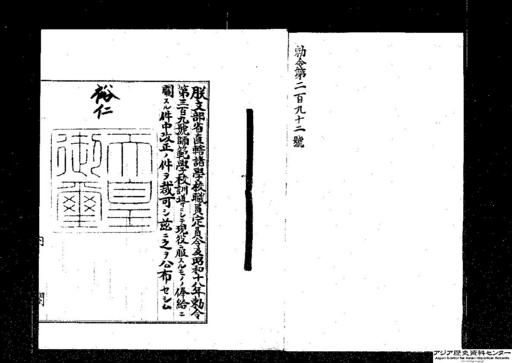 勅令第二百九十二號
朕文部省直轄諸學校職員定員令及昭和十八年勅令
第三百九號師範學校訓導ニシテ現役ニ服スルモノノ俸給ニ
關スル件中改正ノ件ヲ裁可シ茲ニ之ヲ公布セシム
裕仁
天皇
御璽
内閣
アジア歴史資料センター
Japan Center for Asian Historical Records